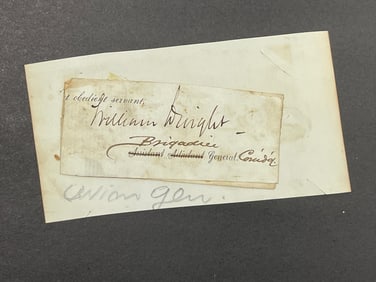 r obedient servant,
William Dwight
Brigadier
Assistant Adjutant General Comd'g
Union Gen.